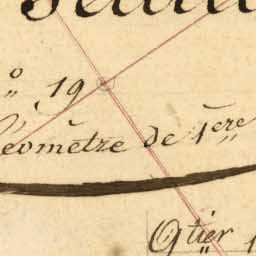 º 19
éomètre de 1ère
Qtier 1